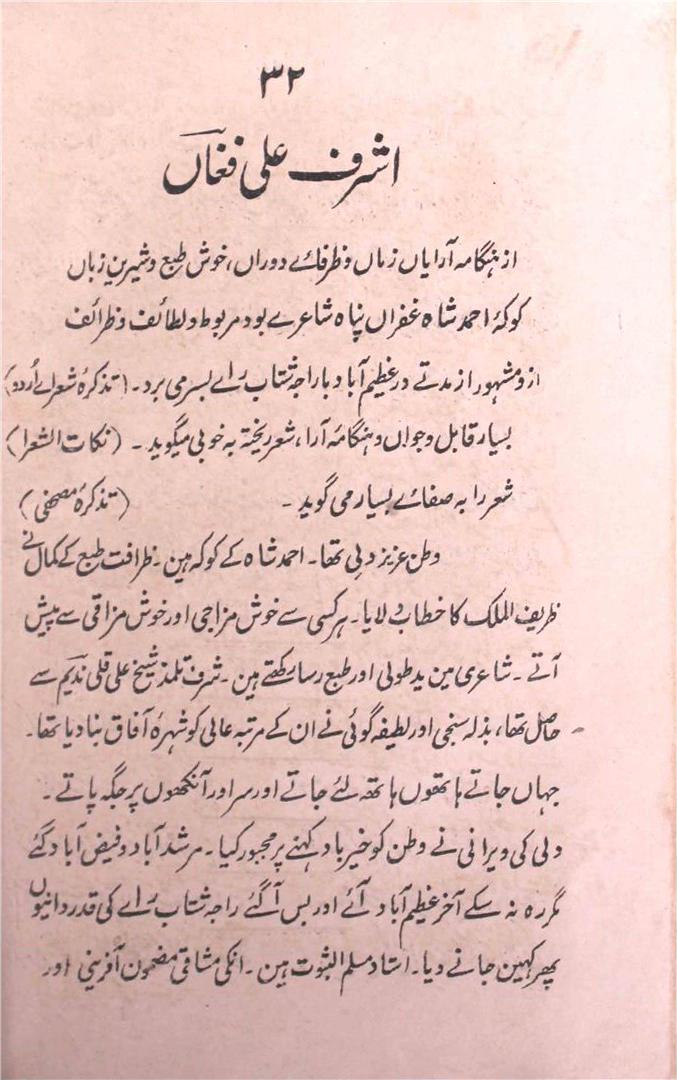 ۳۲
اشرف علی فغاںؔ
از ہنگامہ آرایاں زماں و ظرفائے دوراں، خوش طبع و شیریں زباں
کوکۂ احمد شاہ غفراں پناہ شاعرے بود مربوط و لطائف و ظرائف
ازو مشہور از مدتے در عظیم آباد با راجہ شتاب رائے بسر می برد۔ (تذکرۂ شعرائے اُردو)
بسیار قابل و جواں و ہنگامہ آرا، شعر ریختہ بہ خوبی میگوید۔ (نکات الشعرا)
شعر را بہ صفائے بسیار می گوید۔ (تذکرۂ مصحفی)
وطن عزیز دہلی تھا۔ احمد شاہ کے کوکہ ہین۔ ظرافت طبع کے کمال نے
ظریف الملک کا خطاب دلایا۔ ہر کسی سے خوش مزاجی اور خوش مذاقی سے پیش
آتے۔ شاعری مین ید طولیٰ اور طبع رسا رکھتے ہین۔ شرف تلمذ شیخ علی قلی ندیمؔ سے
حاصل تھا، بذلہ سنجی اور لطیفہ گوئی نے ان کے مرتبہ عالی کو شہرۂ آفاق بنا دیا تھا۔
جہاں جاتے ہاتھوں ہاتھ لئے جاتے اور سر اور آنکھوں پر جگہ پاتے۔
دلی کی ویرانی نے وطن کو خیر باد کہنے پر مجبور کیا۔ مرشد آباد و فیض آباد گئے
مگر رہ نہ سکے آخر عظیم آباد آئے اور بس آگئے راجہ شتاب رائے کی قدردانیوں
پھر کہین جانے دیا۔ استاد مسلم الثبوت ہین۔ انکی مشاقی مضمون آفرینی اور